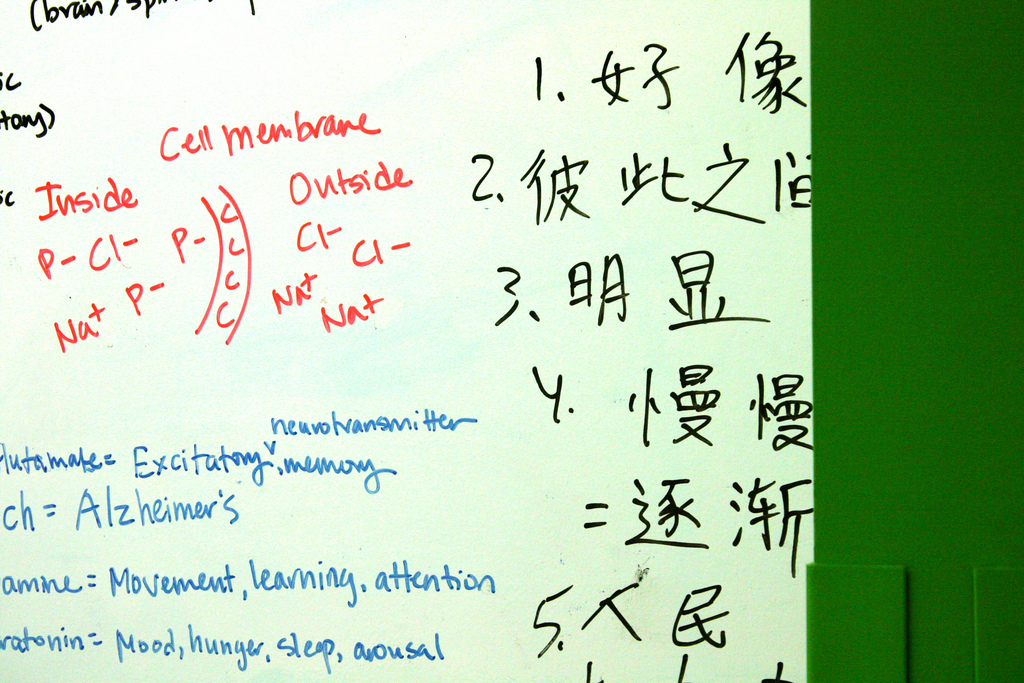 (brain/
Cell membrane
Inside
Outside
P- Cl- P-
C
C
C
C
Cl-
Cl-
Na+ P-
Na+
Na+
neurotransmitter
lutamate = Excitatory, memory
ch = Alzheimer's
amine = Movement, learning, attention
ratonin = Mood, hunger, sleep, arousal
1. 好像
2. 彼此之间
3. 明显
4. 慢慢
= 逐渐
5. 人民